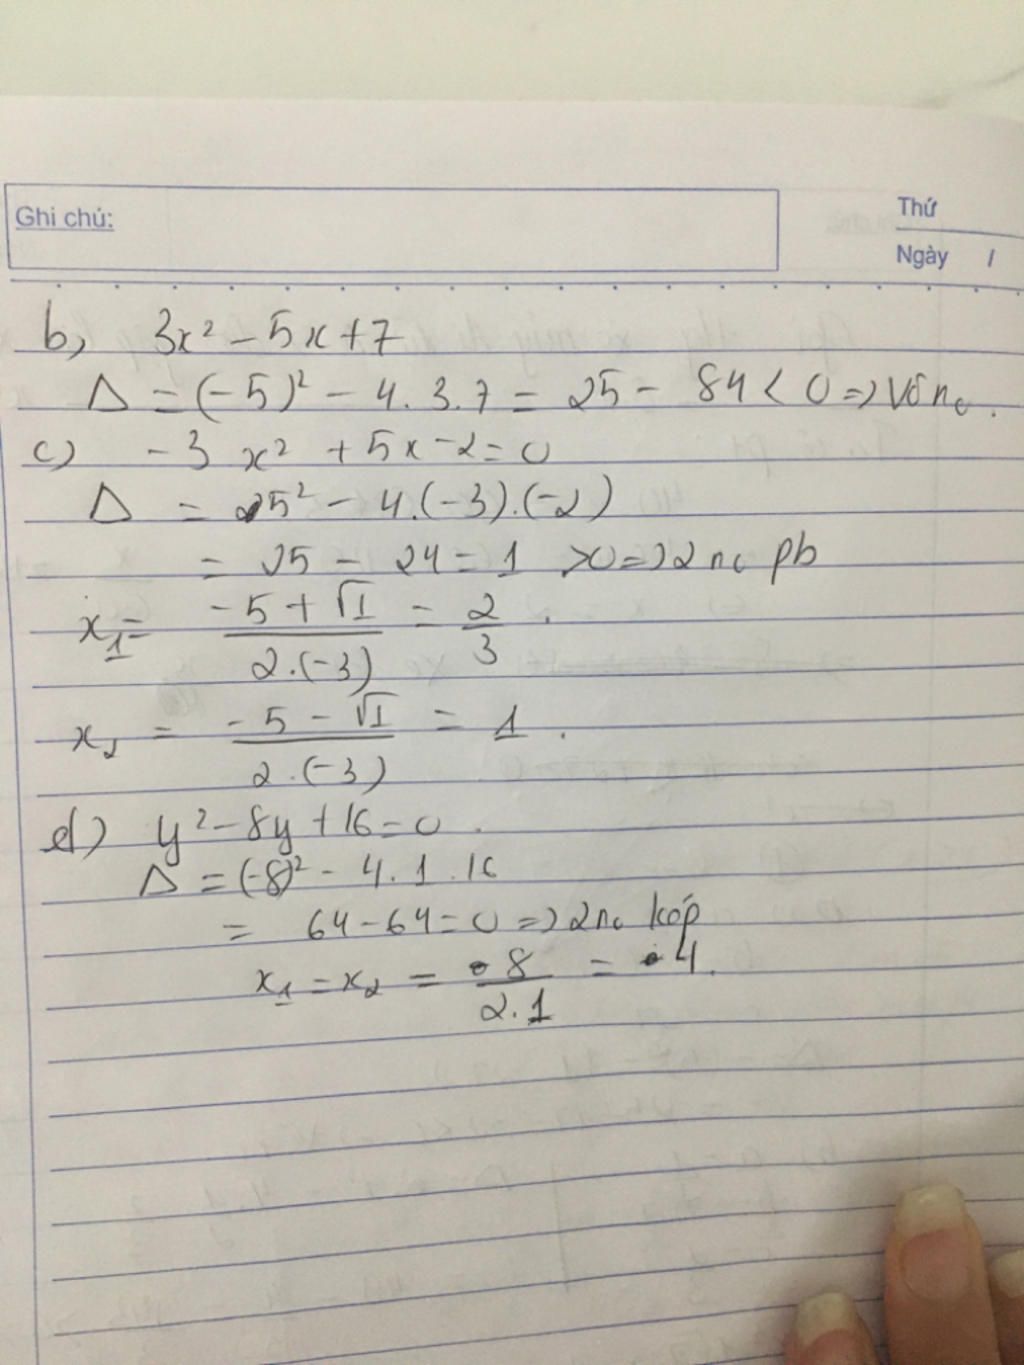 Ghi chú:
Thứ
Ngày /
b, 3x² - 5x + 7
Δ = (-5)² - 4.3.7 = 25 - 84 < 0 => Vô n₀.
c) -3x² + 5x - 2 = 0
Δ = 5² - 4.(-3).(-2)
= 25 - 24 = 1 > 0 => 2 n₀ pb
x₁ = (-5 + √1)/(2.(-3)) = 2/3.
x₂ = (-5 - √1)/(2.(-3)) = 1.
d) y² - 8y + 16 = 0.
Δ = (-8)² - 4.1.16
= 64 - 64 = 0 => 2 n₀ kép
x₁ = x₂ = 8/(2.1) = 4.